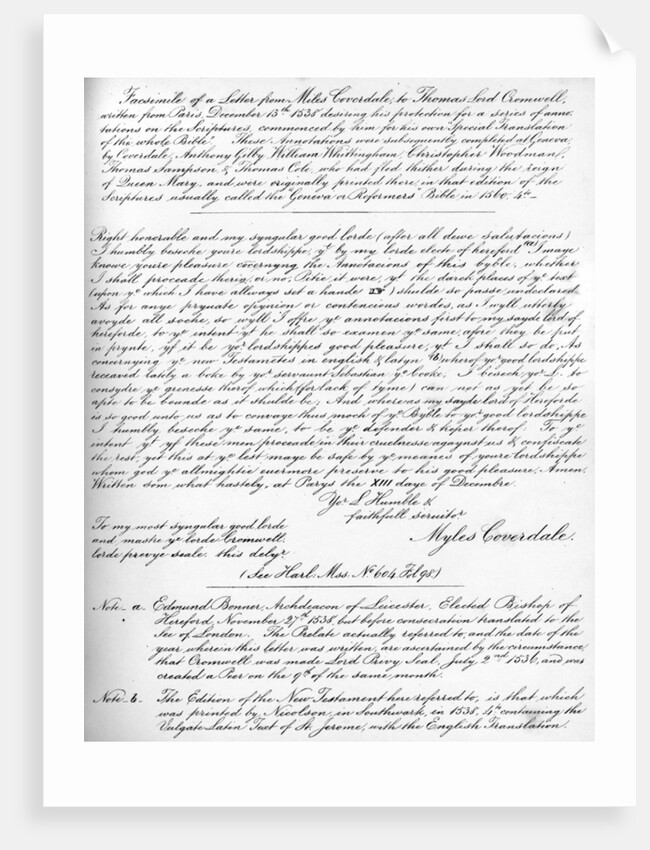 Facsimile of a Letter from Miles Coverdale, to Thomas Lord Cromwell,
written from Paris, December 13th 1538 desiring his protection for a series of anno-
tations on the Scriptures, commenced by him for his own "Special Translation
of the whole Bible". These Annotations were subsequently completed at Geneva,
by Coverdale, Anthony Gilby, William Whittingham, Christopher Woodman,
Thomas Sampson, & Thomas Cole, who had fled thither during the reign
of Queen Mary, and were originally printed there, in that edition of the
Scriptures usually called the Geneva or Reformers' Bible in 1560, 4to—
Right honorable and my syngular good lorde (after all dewe salutacions)
I humbly beseche youre lordshippe, yt by my lorde electe of hereford (a) I maye
knowe youre pleasure cōcernyng the Annotacions of this byble, whether
I shall proceade therin, or no, Pitie it were, yt the darck places of ye text
(upon ye which I have allwaye set a hande ☞) shulde so passe undeclared.
As for anye pryuate opynion or contencious wordes, as I wyll utterly
avoyde all soche, so wyll I offre ye annotacions first to my sayde lord of
hereforde, to ye intent yt he shall so examen ye same, afore they be put
in prynte, yf it be yor lordshippes good pleasure, yt I shall so do. As
concernyng ye new Testamētes in english & latyn (b) wherof yor good lordshippe
receaved lately a boke by yor servaunt Sebastian ye Cooke, I besech yor L. to
consydre ye grenesse therof which (for lack of tyme) can not as yet be so
apte to be bounde as it shulde be, And whereas my sayde lord of Hereforde
is so good unto us as to convaye thus moch of ye Byble to yor good lordshippe
I humbly beseche ye same, to be ye defender & keper therof. To ye
intent yt yf these men proceade in their cruelnesse agaynst us & confiscate
the rest, yet this at ye lest maye be safe by ye meanes of youre lordshippe
whom god ye allmightie evermore preserve to his good pleasure, Amen.
Written som what hastely, at Parys the XIII daye of Decembre.
Yor L Humble &
faithfull servitor
Myles Coverdale.
To my most syngular good lorde
and mastre ye lorde Cromwell.
lorde prevye seale. this delyr
(See Harl. Mss. No 604, Fol 98)
Note - a. Edmund Bonner, Archdeacon of Leicester, Elected Bishop of
Hereford, November 27th 1538, but before consecration translated to the
See of London. The Prelate actually referred to, and the date of the
year wherein this letter was written, are ascertained by the circumstance,
that Cromwell was made Lord Privy Seal, July 2nd 1536, and was
created a Peer on the 9th of the same month.
Note - b - The Edition of the New Testament here referred to, is that which
was printed by Nicolson, in Southwark, in 1538, 4to containing the
Vulgate Latin Text of St. Jerome, with the English Translation.